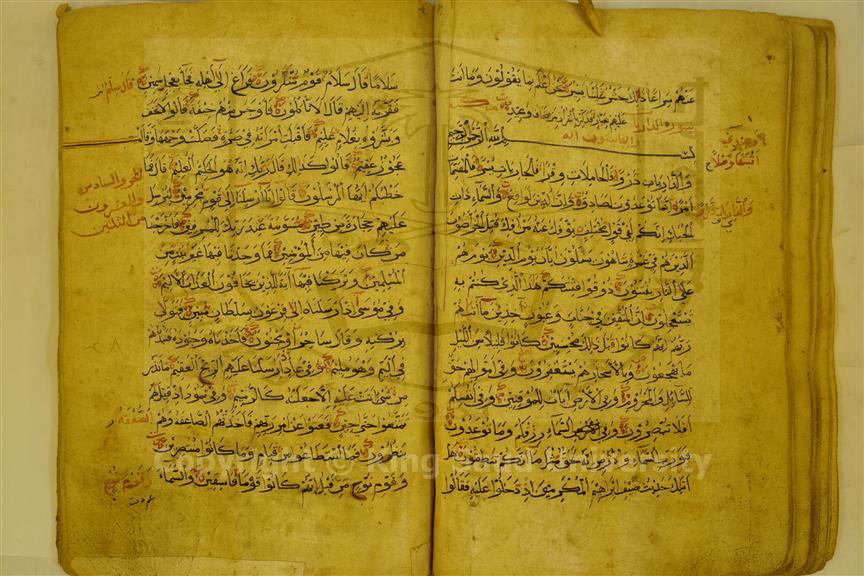 عنهم سراعا ذلك حشر علينا يسير نحن اعلم بما يقولون وما انت
عليهم بجبار فذكر بالقران من يخاف وعيد
سورة الذاريات
بسم الله الرحمن الرحيم
والذاريات ذروا فالحاملات وقرا فالجاريات يسرا فالمقسمات
امرا انما توعدون لصادق وان الدين لواقع والسماء ذات
الحبك انكم لفي قول مختلف يوفك عنه من افك قتل الخراصون
الذين هم في غمرة ساهون يسئلون ايان يوم الدين يوم هم
على النار يفتنون ذوقوا فتنتكم هذا الذي كنتم به
تستعجلون ان المتقين في جنات وعيون اخذين ما اتيهم
ربهم انهم كانوا قبل ذلك محسنين كانوا قليلا من الليل
ما يهجعون وبالاسحار هم يستغفرون وفي اموالهم حق
للسائل والمحروم وفي الارض ايات للموقنين وفي انفسكم
افلا تبصرون وفي السماء رزقكم وما توعدون
فورب السماء والارض انه لحق مثل ما انكم تنطقون هل
اتيك حديث ضيف ابرهيم المكرمين اذ دخلوا عليه فقالوا
سلاما قال سلام قوم منكرون فراغ الى اهله فجاء بعجل سمين
فقربه اليهم قال الا تاكلون فاوجس منهم خيفة قالوا لا تخف
وبشروه بغلام عليم فاقبلت امراته في صرة فصكت وجهها وقالت
عجوز عقيم قالوا كذلك قال ربك انه هو الحكيم العليم قال فما
خطبكم ايها المرسلون قالوا انا ارسلنا الى قوم مجرمين لنرسل
عليهم حجارة من طين مسومة عند ربك للمسرفين فاخرجنا
من كان فيها من المومنين فما وجدنا فيها غير بيت من
المسلمين وتركنا فيها اية للذين يخافون العذاب الاليم
وفي موسى اذ ارسلناه الى فرعون بسلطان مبين فتولى
بركنه وقال ساحر او مجنون فاخذناه وجنوده فنبذناهم
في اليم وهو مليم وفي عاد اذ ارسلنا عليهم الريح العقيم ما تذر
من شيء اتت عليه الا جعلته كالرميم وفي ثمود اذ قيل لهم
تمتعوا حتى حين فعتوا عن امر ربهم فاخذتهم الصاعقة وهم
ينظرون فما استطاعوا من قيام وما كانوا منتصرين
وقوم نوح من قبل انهم كانوا قوما فاسقين والسماء
الجزو السادس
والعشرون
من الثلثين
Copyright © King Saud University